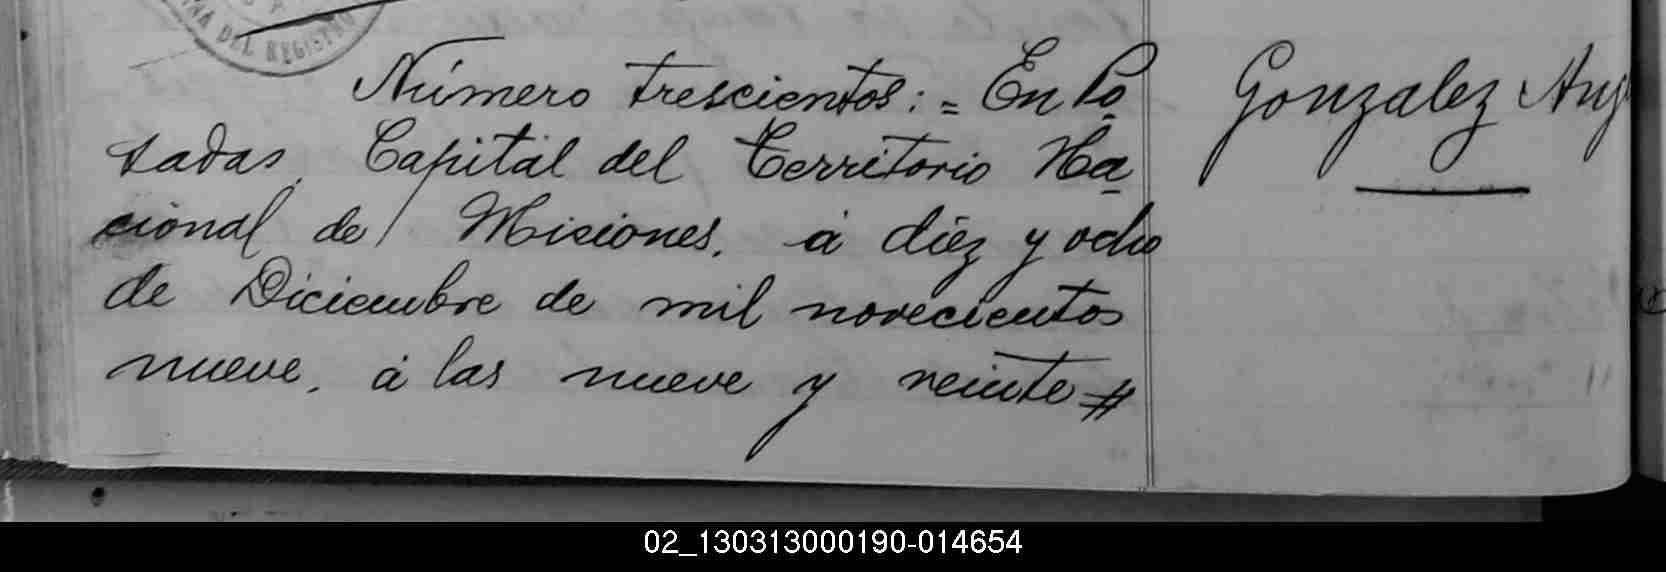 DEL REGISTRO
Número trescientos:= En Po
sadas, Capital del Territorio Na
cional de Misiones, á diez y ocho
de Diciembre de mil novecientos
nueve, á las nueve y veinte #
Gonzalez Aug
02_130313000190-014654